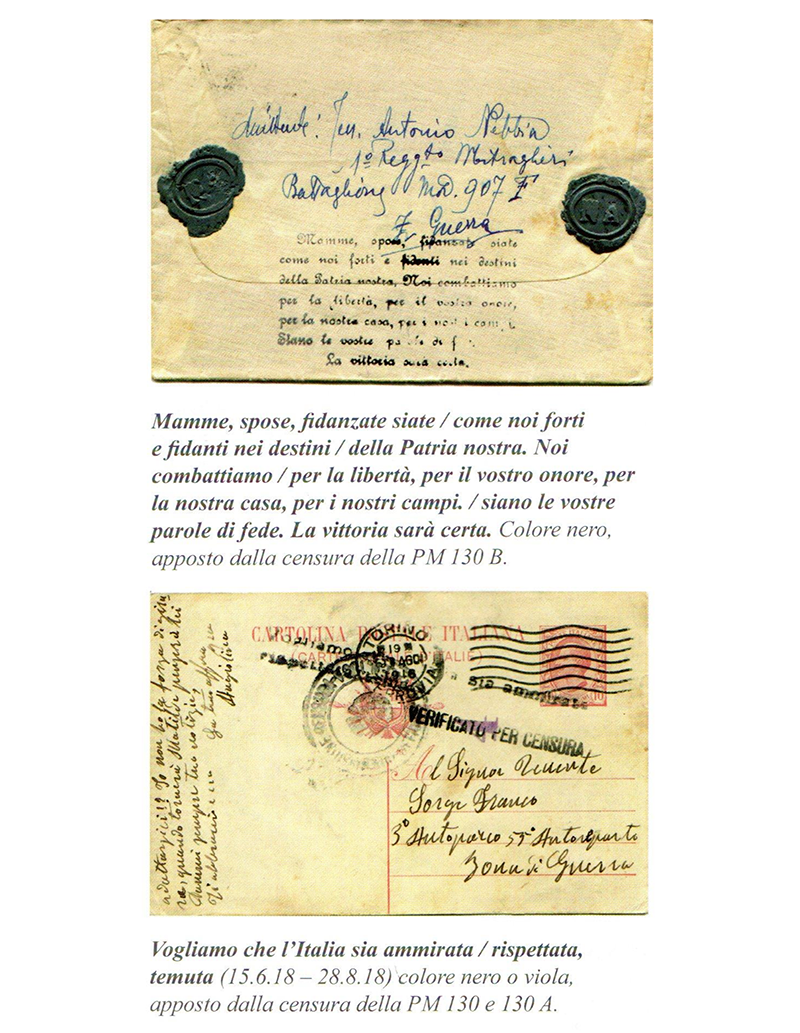 Ten. Antonio Nebbia
1º Regg.to Mitraglieri
Battaglione Md. 907 F
Z. Guerra
N A
Mamme, spose, fidanzate siate
come noi forti e fidenti nei destini
della Patria nostra. Noi combattiamo
per la libertà, per il vostro onore,
per la nostra casa, per i nostri campi.
Siano le vostre di
La vittoria sarà certa.
Mamme, spose, fidanzate siate / come noi forti
e fidanti nei destini / della Patria nostra. Noi
combattiamo / per la libertà, per il vostro onore, per
la nostra casa, per i nostri campi. / siano le vostre
parole di fede. La vittoria sarà certa. Colore nero,
apposto dalla censura della PM 130 B.
CARTOLINA ITALIANA
TORINO
19
FERROVIA
sia ammirata
VERIFICATO PER CENSURA
Al Signor Tenente
Sorge Franco
3º Autoparco 55º Autoreparto
Zona di Guerra
adattarsici!! Io non ho la forza di
quando tornerà Matilde
Dammi sempre tue notizie
Vogliamo che l'Italia sia ammirata / rispettata,
temuta (15.6.18 – 28.8.18) colore nero o viola,
apposto dalla censura della PM 130 e 130 A.